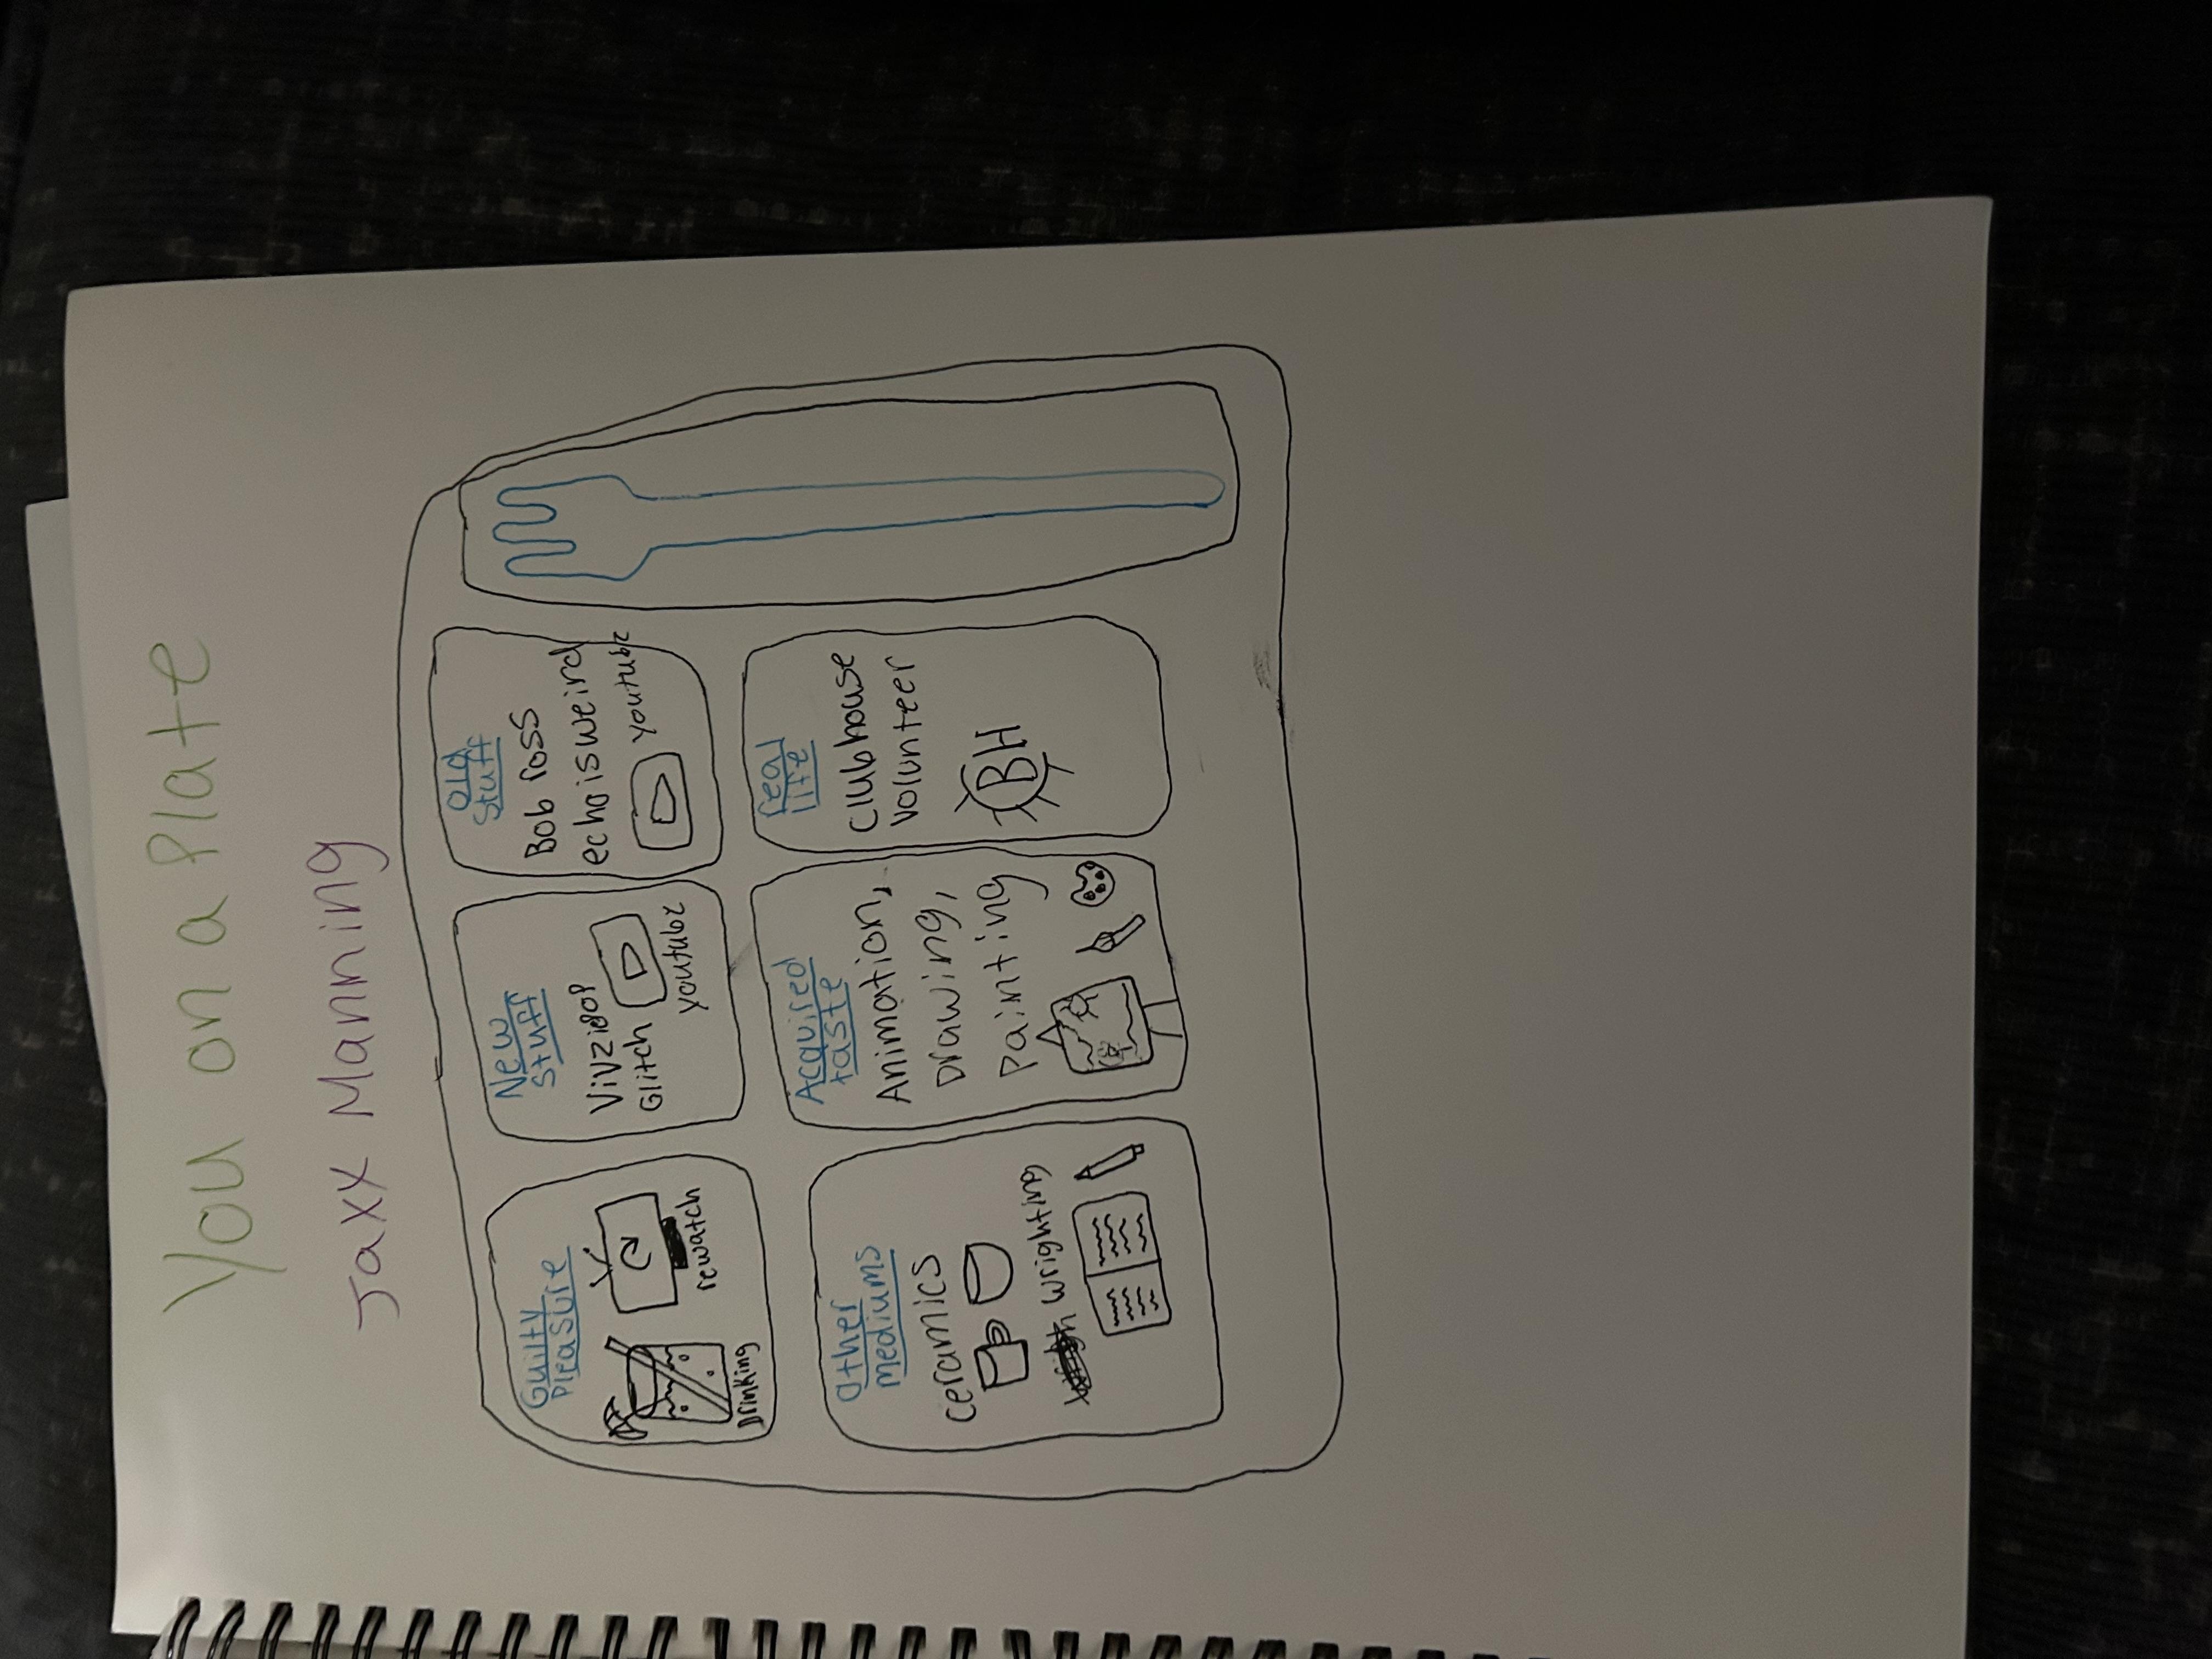 You on a Plate
Jaxx Manning
Guilty
Pleasure
Drinking
rewatch
New
Stuff
Vivziepop
Glitch
youtube
Old
Stuff
Bob ross
echoisweird
youtube
Other
Mediums
ceramics
wrighting
Acquired
taste
Animation,
Drawing,
Painting
real
life
Clubhouse
volunteer
BH